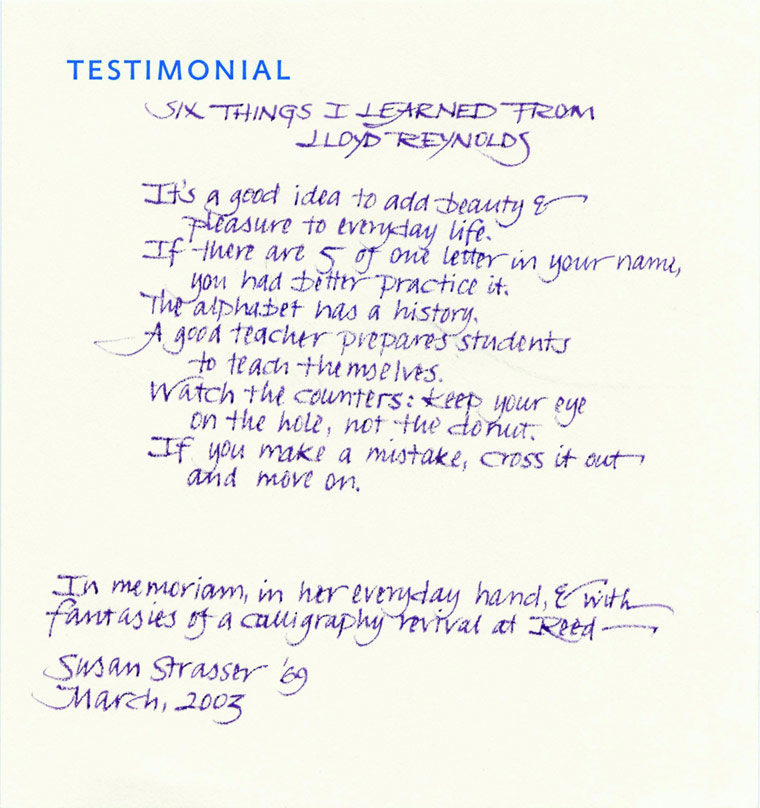 TESTIMONIAL
SIX THINGS I LEARNED FROM
LLOYD REYNOLDS
It's a good idea to add beauty &
pleasure to everyday life.
If there are 5 of one letter in your name,
you had better practice it.
The alphabet has a history.
A good teacher prepares students
to teach themselves.
Watch the counters: keep your eye
on the hole, not the donut.
If you make a mistake, cross it out
and move on.
In memoriam, in her everyday hand, & with
fantasies of a calligraphy revival at Reed—
Susan Strasser '69
March, 2003